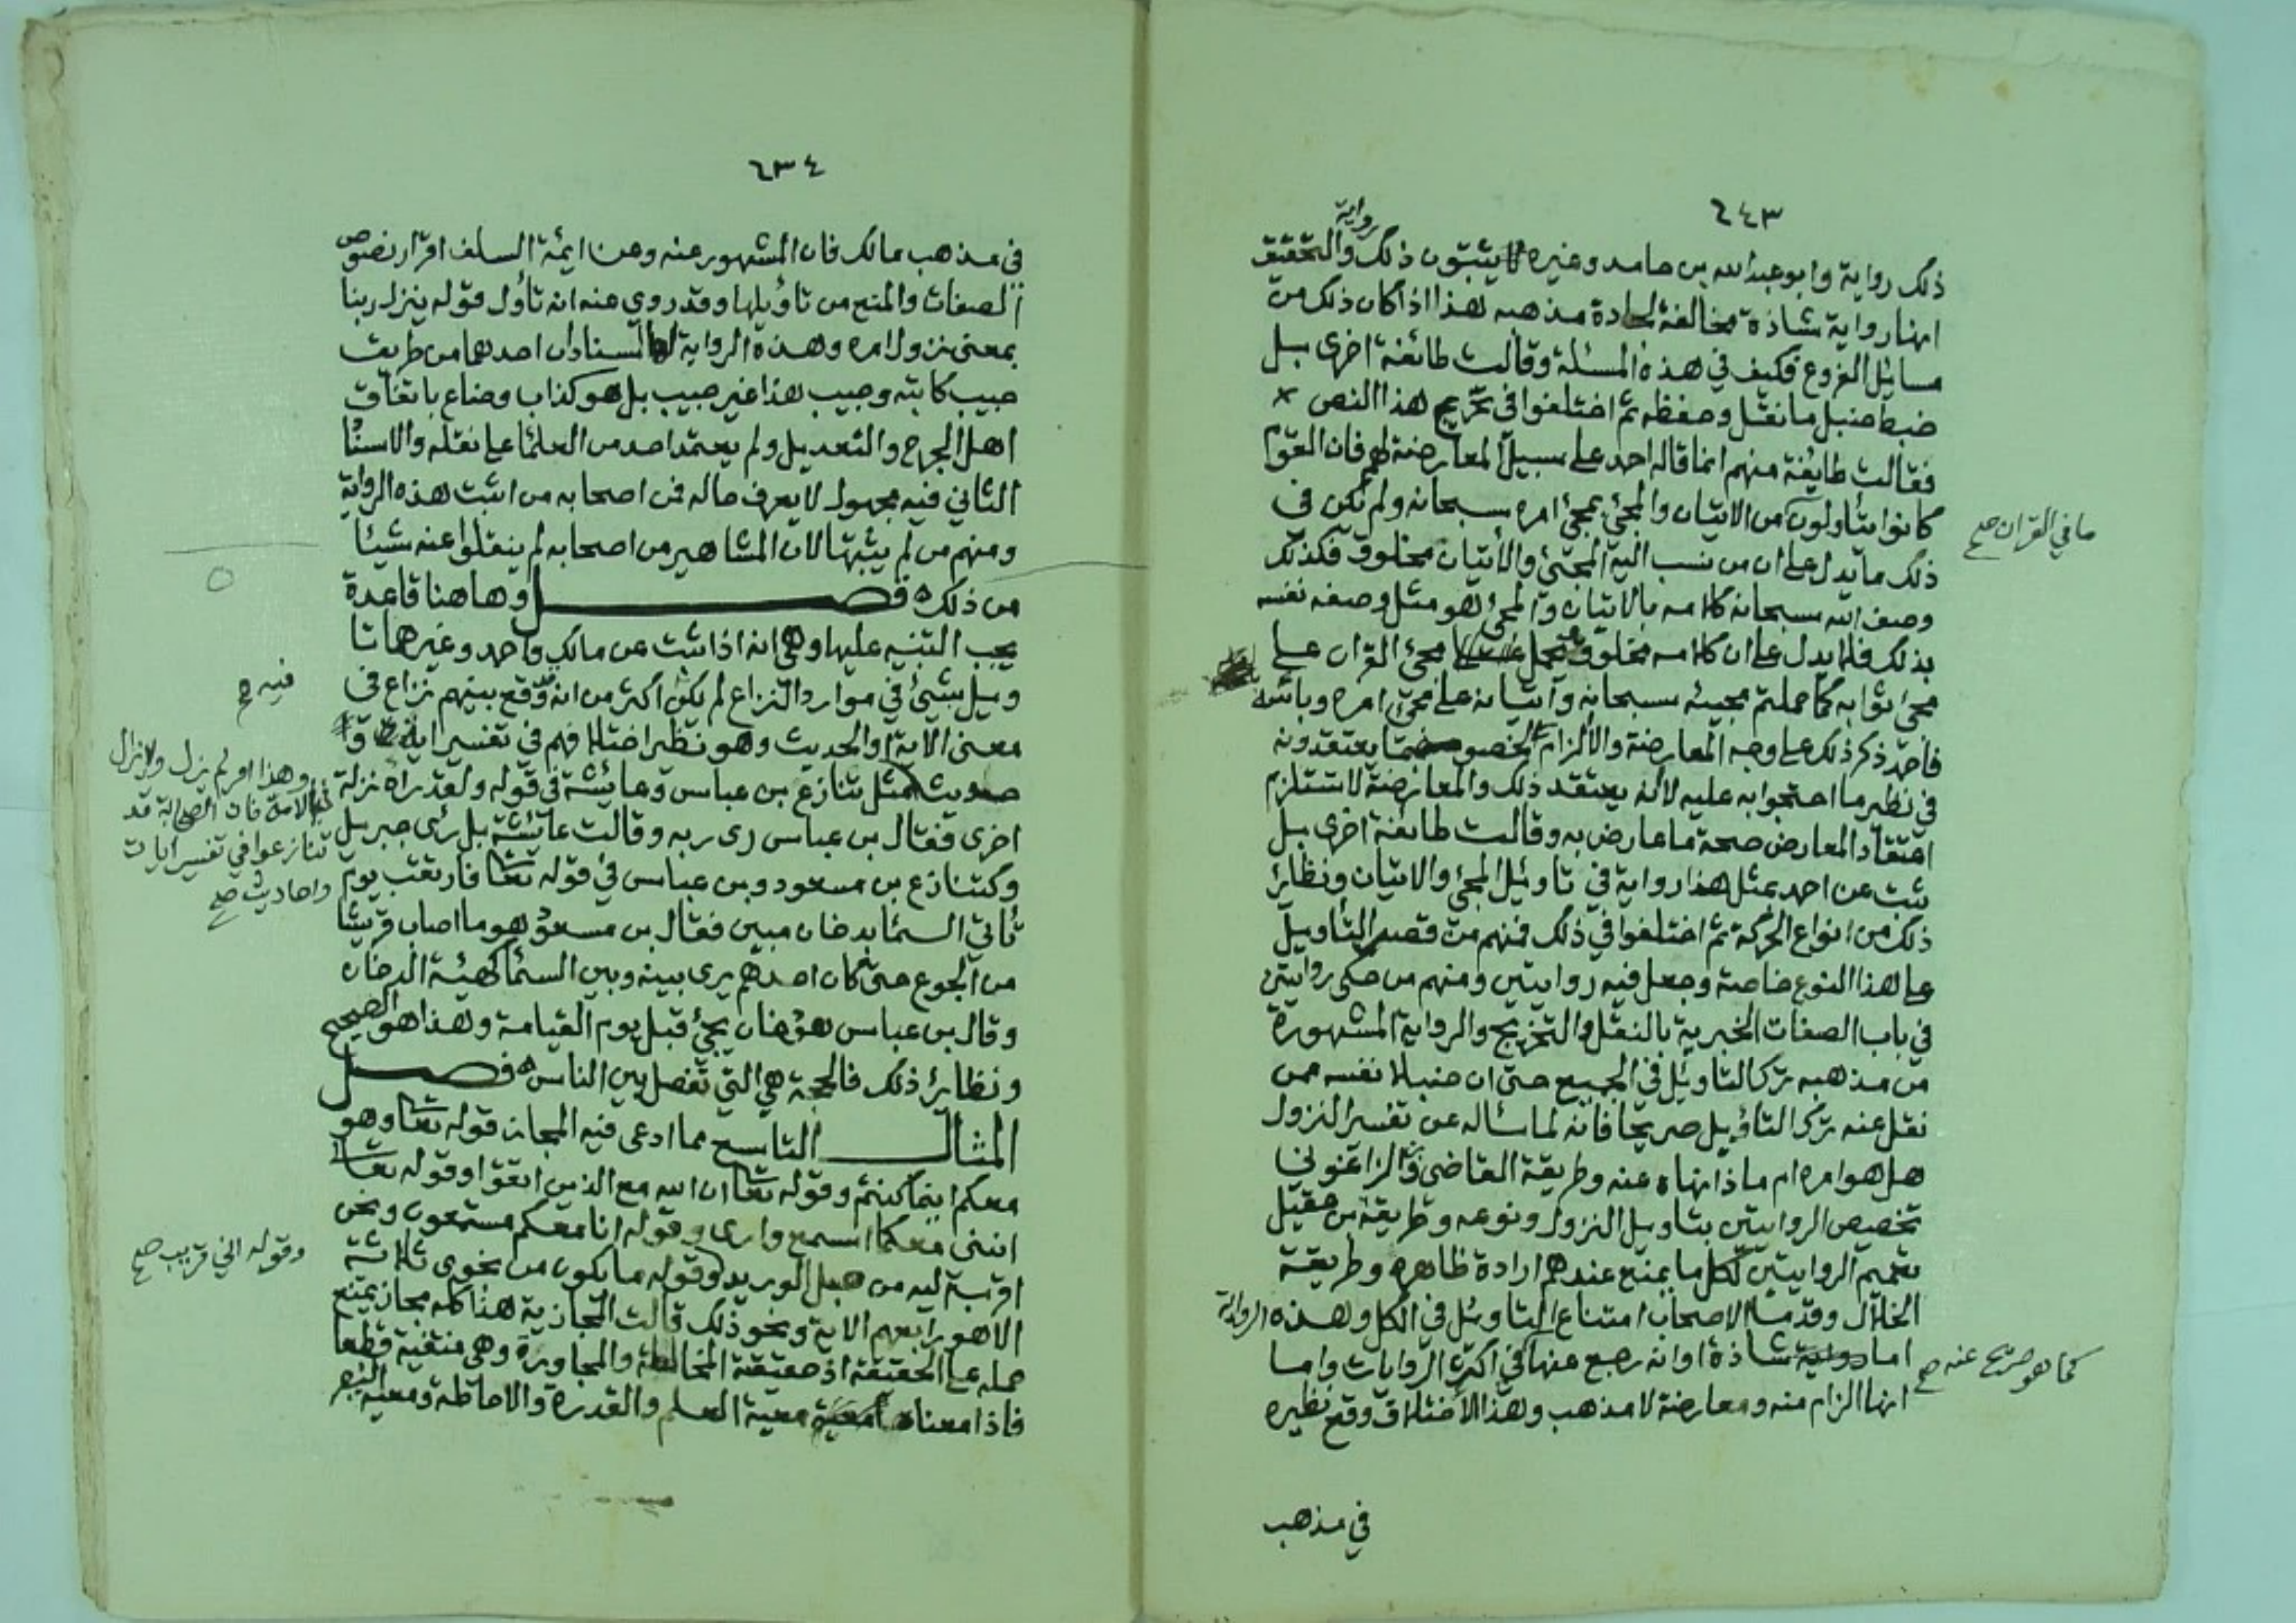 ٦٤٣
رواية
ذلك رواية وابو عبد الله بن حامد وغيره لا يثبتون ذلك والتحقيق
انها رواية شاذة مخالفة لجادة مذهبه هذا اذا كان ذلك من
مسائل الفروع فكيف في هذه المسئلة وقالت طائفة اخرى بل
ضبط حنبل ما نقل وحفظه ثم اختلفوا في تخريج هذا النص
فقالت طايفة منهم انما قاله احمد على سبيل المعارضة لهم فان القوم
كانوا يتاولون من الاتيان والمجئ بمجئ امره سبحانه ولم تكن في
ما في القران صح
ذلك ما يدل على ان من نسب اليه المجئ والاتيان مخلوق فكذلك
وصف الله سبحانه كلامه بالاتيان والمجئ هو مثل وصفه نفسه
بذلك فلا يدل على ان كلامه مخلوق يحمل مجئ القران على
مجئ ثوابه كما حملتم مجيئه سبحانه واتيانه على مجئ امره وباسه
فاحمد ذكر ذلك على وجه المعارضة والالزام لخصومه بما يعتقدونه
في نظير ما احتجوا به عليه لا انه يعتقد ذلك والمعارضة لا تستلزم
اعتقاد المعارض صحة ما عارض به وقالت طائفة اخرى بل
ثبت عن احمد بمثل هذا رواية في تاويل المجئ والاتيان ونظائر
ذلك من انواع الحركة ثم اختلفوا في ذلك فمنهم من قصر التأويل
على هذا النوع خاصة وجعل فيه روايتين ومنهم من حكى روايتين
في باب الصفات الخبرية بالنقل والتخريج والرواية المشهورة
من مذهبه ترك التاويل في الجميع حتى ان حنبلا نفسه ممن
نقل عنه ترك التاويل صريحا فانه لما سأله عن تفسير النزول
هل هو امره ام ماذا نهاه عنه وطريقة القاضي وابن الزاغوني
تخصيص الروايتين بتاويل النزول ونوعه وطريقة بن عقيل
تعميم الروايتين لكل ما يمنع عندهم ارادة ظاهره وطريقة
الخلال وقدما الاصحاب امتناع التاويل في الكل وهذه الرواية
اما رواية شاذة او انه رجع عنها في اكثر الروايات واما
كما هو صريح عنه صح
انها الزام منه ومعارضة لا مذهب وهذا الاختلاف وقع نظيره
في مذهب
٦٣٤
في مذهب مالك فان المشهور عنه وعن ايمة السلف اقرار نصوص
الصفات والمنع من تاويلها وقد روي عنه انه تأول قوله ينزل ربنا
بمعنى نزول امره وهذه الرواية لها اسنادان احدهما من طريق
حبيب كاتبه وحبيب هذا غير حبيب بل هو كذاب وضاع باتفاق
اهل الجرح والتعديل ولم يعتمد احد من العلما على نقله والاسناد
الثاني فيه مجهول لا يعرف حاله فمن اصحابه من اثبت هذه الرواية
ومنهم من لم يثبتها لان المشاهير من اصحابه لم ينقلوا عنه شيئا
من ذلك ه فصل وهاهنا قاعدة
يجب التنبيه عليها وهي انه اذا ثبت عن مالك واحمد وغيرهما تا
ويل شيئ في موارد النزاع لم يكن اكثر من انه وقع بينهم نزاع في
فيه ح
معنى الاية او الحديث وهو نظير اختلافهم في تفسير اية او
وهذا امر لم يزل ولا يزال
في الامة فان الصحابة قد
تنازعوا في تفسير ايات
واحاديث صح
حديث مثل تنازع بن عباس وعائشة في قوله ولقد رآه نزلة
اخرى فقال بن عباس رى ربه وقالت عائشة بل رئى جبريل
وكتنازع بن مسعود وبن عباس في قوله تعا فارتقب يوم
تأتي السما بدخان مبين فقال بن مسعود هو ما اصاب قريشا
من الجوع حتى كان احدهم يرى بينه وبين السما كهيئة الدخان
وقال بن عباس هو دخان يجئ قبل يوم القيامة وهذا هو الصحيح
ونظائر ذلك فالحجة هي التي تفصل بين الناس ه فصل
المثال التاسع مما ادعى فيه المجاز قوله تعا وهو
معكم اينما كنتم وقوله تعا ان الله مع الذين اتقوا وقوله تعا
انني معكما اسمع وارى وقوله انا معكم مستمعون ونحن
اقرب اليه من حبل الوريد وقوله ما يكون من نجوى ثلاثة
وقوله اني قريب صح
الا هو رابعهم الاية ونحو ذلك قالت المجازية هذا كله مجاز يمتنع
حمله على الحقيقة اذ حقيقته المخالطة والمجاورة وهي منتفية قطعا
فاذا معناه معية العلم والقدرة والاحاطة ومعية النصر